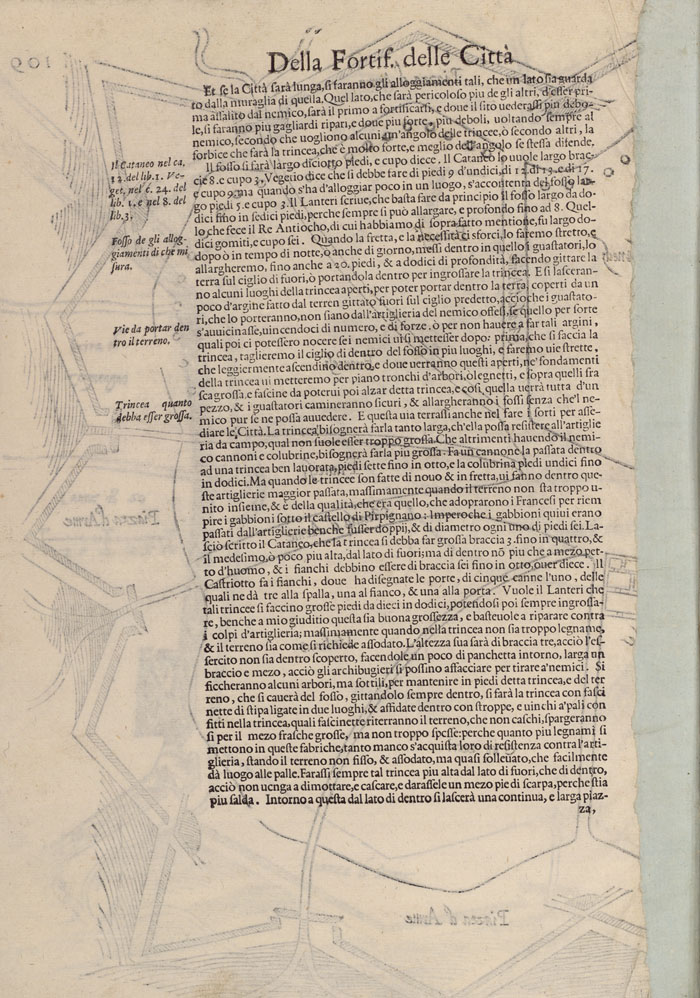 Della Fortif. delle Città
Et se la Città sarà lunga, si faranno gli alloggiamenti tali, che un lato sia guarda
to dalla muraglia di quella. Quel lato, che sarà pericoloso piu de gli altri, d'esser pri-
ma assalito dal nemico, sarà il primo a fortificarsi, e doue il sito uederassi piu debo-
le, si faranno piu gagliardi ripari, e doue piu forte, piu deboli, uoltando sempre al
nemico, secondo che uogliono alcuni un'angolo delle trincee, ò secondo altri, la
forbice che farà la trincea, che è molto forte, e meglio dell'angolo se stessa difende.
Il fosso si farà largo diciotto piedi, e cupo diece. Il Cataneo lo uuole largo brac-
cie 8. e cupo 3. Vegetio dice che si debbe fare di piedi 9 d'undici, di 12 di 13. e di 17.
e cupo 9. ma quando s'ha d'alloggiar poco in un luogo, s'accontenta del fosso lar-
go piedi 5. e cupo 3. Il Lanteri scriue, che basta fare da principio il fosso largo da do-
dici fino in sedici piedi, perche sempre si può allargare, e profondo fino ad 8. Quel-
lo che fece il Re Antiocho, di cui habbiamo di sopra fatto mentione, fu largo do-
dici gomiti, e cupo sei. Quando la fretta, e la necessità ci sforci, lo faremo stretto, e
dopo ò in tempo di notte, ò anche di giorno, messi dentro in quello i guastatori, lo
allargheremo, fino anche a 20. piedi, & a dodici di profondità, facendo gittare la
terra sul ciglio di fuori, ò portandola dentro per ingrossare la trincea. E si lasceran-
no alcuni luoghi della trincea aperti, per poter portar dentro la terra, coperti da un
poco d'argine fatto dal terren gittato fuori sul ciglio predetto, acciò che i guastato-
ri, che lo porteranno, non siano dall'artiglieria del nemico offesi, se quello per sorte
s'auuicinasse, uincendoci di numero, e di forze. ò per non hauere a far tali argini,
quali poi ci potessero nocere se i nemici ui si mettesser dopo: prima, che si faccia la
trincea, taglieremo il ciglio di dentro del fosso in piu luoghi, e faremo uie strette,
che leggiermente ascendino dentro, e doue uerranno questi aperti, ne' fondamenti
della trincea ui metteremo per piano tronchi d'arbori, ò legnetti, e sopra quelli fra
sca grossa, e fascine da poterui poi alzar detta trincea, e così quella uerrà tutta d'un
pezzo, & i guastatori camineranno sicuri, & allargheranno i fossi senza che'l ne-
mico pur se ne possa auuedere. E questa uia terrassi anche nel fare i forti per asse-
diare le Città. La trincea bisognerà farla tanto larga, ch'ella possa resistere all'artiglie
ria da campo, qual non suole esser troppo grossa. Che altrimenti hauendo il nemi-
co cannoni e colubrine, bisognerà farla piu grossa. Fa un cannone la passata dentro
ad una trincea ben lauorata, piedi sette fino in otto, e la colubrina piedi undici fino
in dodici. Ma quando le trincee son fatte di nouo & in fretta, ui fanno dentro que-
ste artiglierie maggior passata, massimamente quando il terreno non sta troppo u-
nito insieme, & è della qualità, che era quello, che adoprarono i Francesi per riem
pire i gabbioni sotto il castello di Pirpignano: Imperoche i gabbioni quiui erano
passati dall'artiglierie benche fusser doppii, & di diametro ogni uno di piedi sei. La-
sciò scritto il Cataneo, che la trincea si debba far grossa braccia 3. fino in quattro, &
il medesimo, ò poco piu alta, dal lato di fuori; ma di dentro nō piu che a mezo pet-
to d'huomo, & i fianchi debbino essere di braccia sei fino in otto, ouer diece. Il
Castriotto fa i fianchi, doue ha disegnate le porte, di cinque canne l'uno, delle
quali ne dà tre alla spalla, una al fianco, & una alla porta. Vuole il Lanteri che
tali trincee si faccino grosse piedi da dieci in dodici, potendosi poi sempre ingrossa-
re, benche a mio giuditio questa sia buona grossezza, e basteuole a riparare contra
i colpi d'artiglieria; massimamente quando nella trincea non sia troppo legname,
& il terreno sia come si richiede assodato. L'altezza sua sarà di braccia tre, acciò l'es-
sercito non sia dentro scoperto, facendole un poco di panchetta intorno, larga un
braccio e mezo, acciò gli archibugieri si possino affacciare per tirare a'nemici. Si
ficcheranno alcuni arbori, ma sottili, per mantenere in piedi detta trincea, e del ter
reno, che si cauerà del fosso, gittandolo sempre dentro, si farà la trincea con fasci
nette di stipa ligate in due luoghi, & affidate dentro con stroppe, e uinchi a'pali con
fitti nella trincea, quali fascinette riterranno il terreno, che non caschi, spargeranno
si per il mezo frasche grosse, ma non troppo spesse: perche quanto piu legnami si
mettono in queste fabriche, tanto manco s'acquista loro di resistenza contra l'arti-
glieria, stando il terreno non fisso, & assodato, ma quasi solleuato, che facilmente
dà luogo alle palle. Farassi sempre tal trincea piu alta dal lato di fuori, che di dentro,
acciò non uenga a dimottare, e cascare, e darassele un mezo pie di scarpa, perche stia
piu salda. Intorno a questa dal lato di dentro si lascerà una continua, e larga piaz-
za,
Il Cataneo nel ca.
12. del lib. 1. Ve-
get. nel c. 24. del
lib. 1. e nel 8. del
lib. 3.
Fosso de gli allog-
giamenti di che mi
sura.
Vie da portar den
tro il terreno.
Trincea quanto
debba esser grossa.
109
Piazza d'Arme
Piazza d'Arme